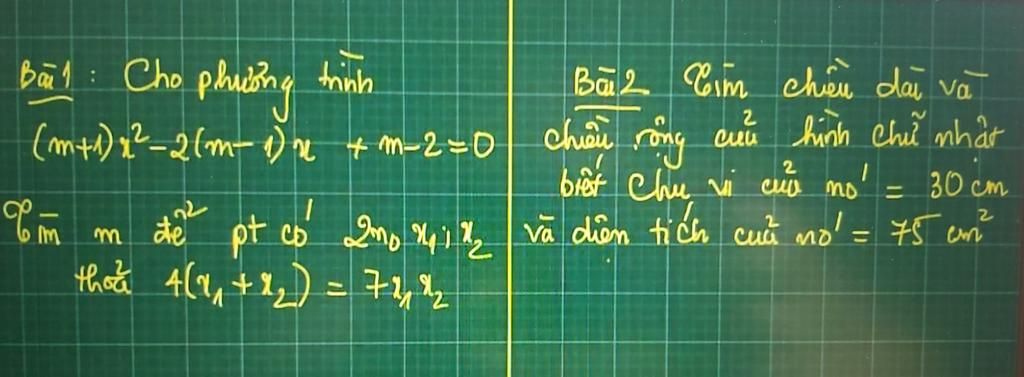 Bài 1 : Cho phương trình
(m+1)x² - 2(m-1)x + m-2=0
Tìm m để pt có 2no x₁; x₂
thoả 4(x₁ + x₂) = 7x₁x₂
Bài 2 Tìm chiều dài và
chiều rộng của hình chữ nhật
biết chu vi của nó = 30 cm
và diện tích của nó = 75 cm²